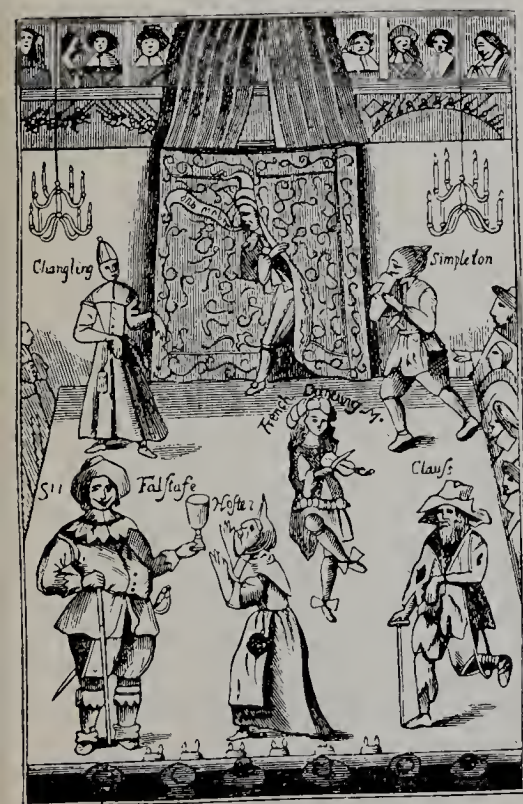 Changling
Simpleton
French Dancing-M.
Clauſ:
Sir Falſtafe
Hoſtes